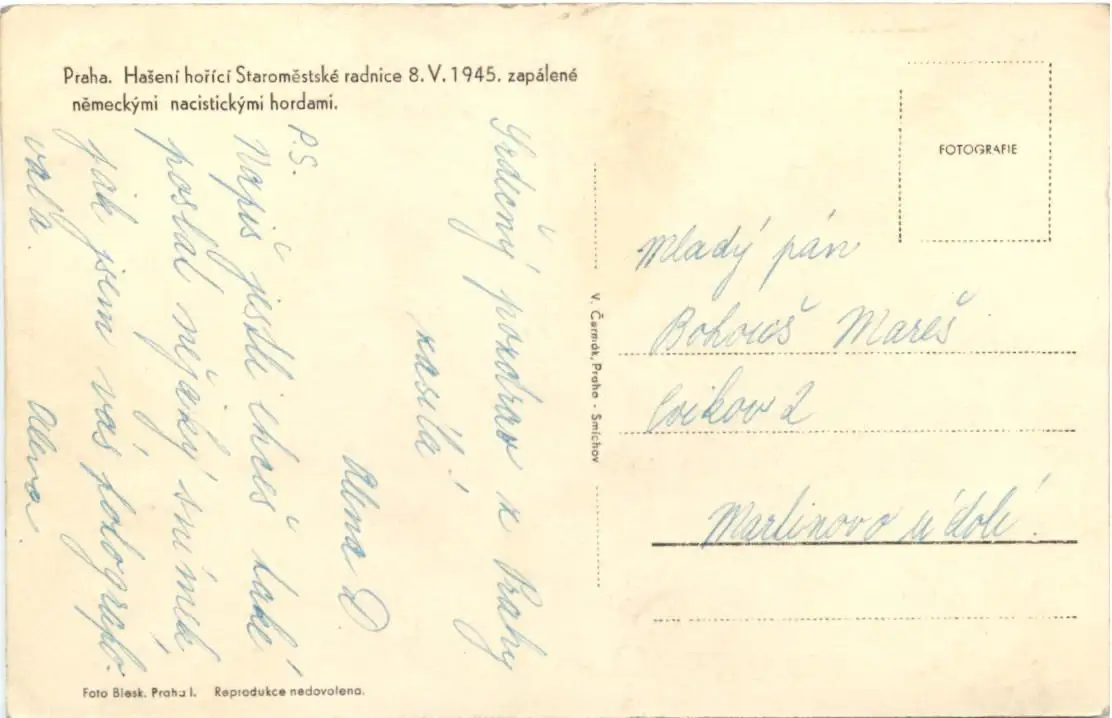 Praha. Hašení hořící Staroměstské radnice 8. V. 1945. zapálené
německými nacistickými hordami.
Srdečný pozdrav z Prahy
zasílá
Alena D.
P.S.
Napiš jestli chceš také
poslat nějaký snímek
jak jsem vás fotografo-
vala.
Alena
V. Čermák, Praha - Smíchov
FOTOGRAFIE
Mladý pán
Bohouš Mareš
Cvikov 2
Martinovo údolí!
Foto Blesk. Praha I. Reprodukce nedovolena.